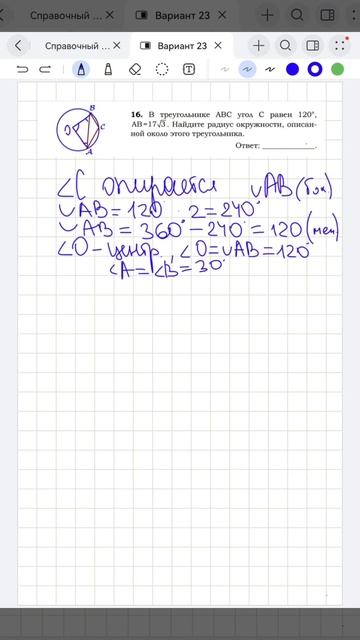 Справочный
Вариант 23
Справочный
Вариант 23
16. В треугольнике ABC угол C равен 120°,
AB=17√3. Найдите радиус окружности, описан-
ной около этого треугольника.
Ответ: ______________.
B
O
C
A
∠C опирается ◡AB (бол)
◡AB = 120 · 2 = 240°
◡AB = 360° − 240° = 120 (мен)
∠O – центр, ∠O = ◡AB = 120°
∠A = ∠B = 30°